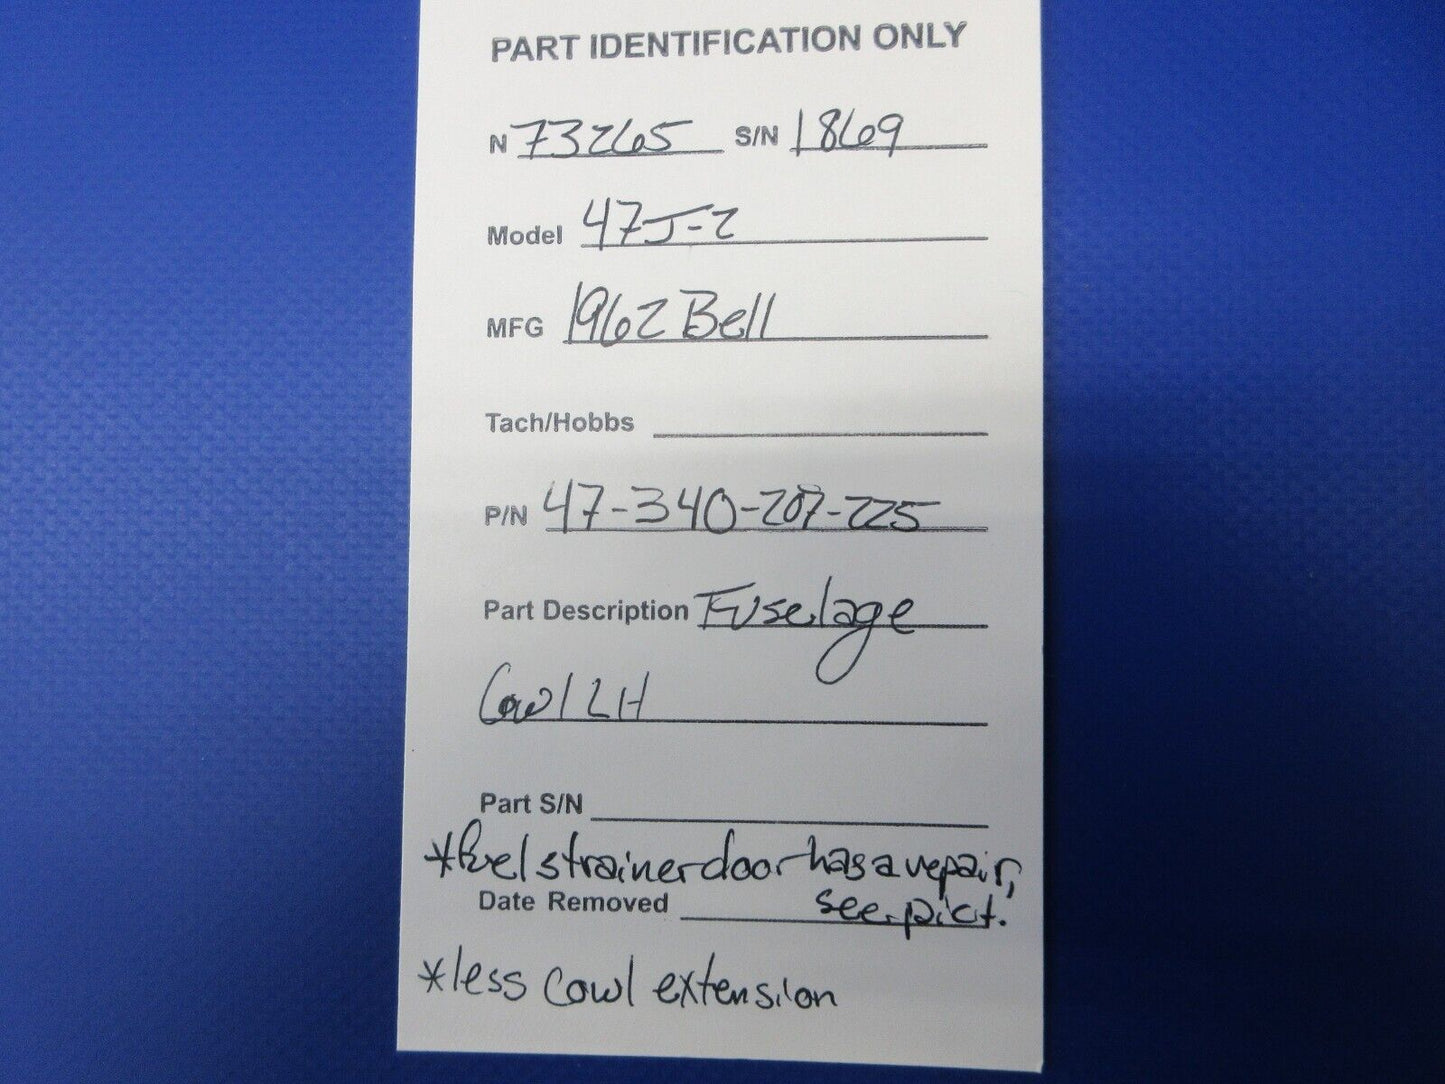 PART IDENTIFICATION ONLY
N 73265 S/N 1869
Model 47J-2
MFG 1962 Bell
Tach/Hobbs
P/N 47-340-207-225
Part Description Fuselage
Cowl LH
Part S/N
*fuel strainer door has a repair,
Date Removed see pict.
*less cowl extension